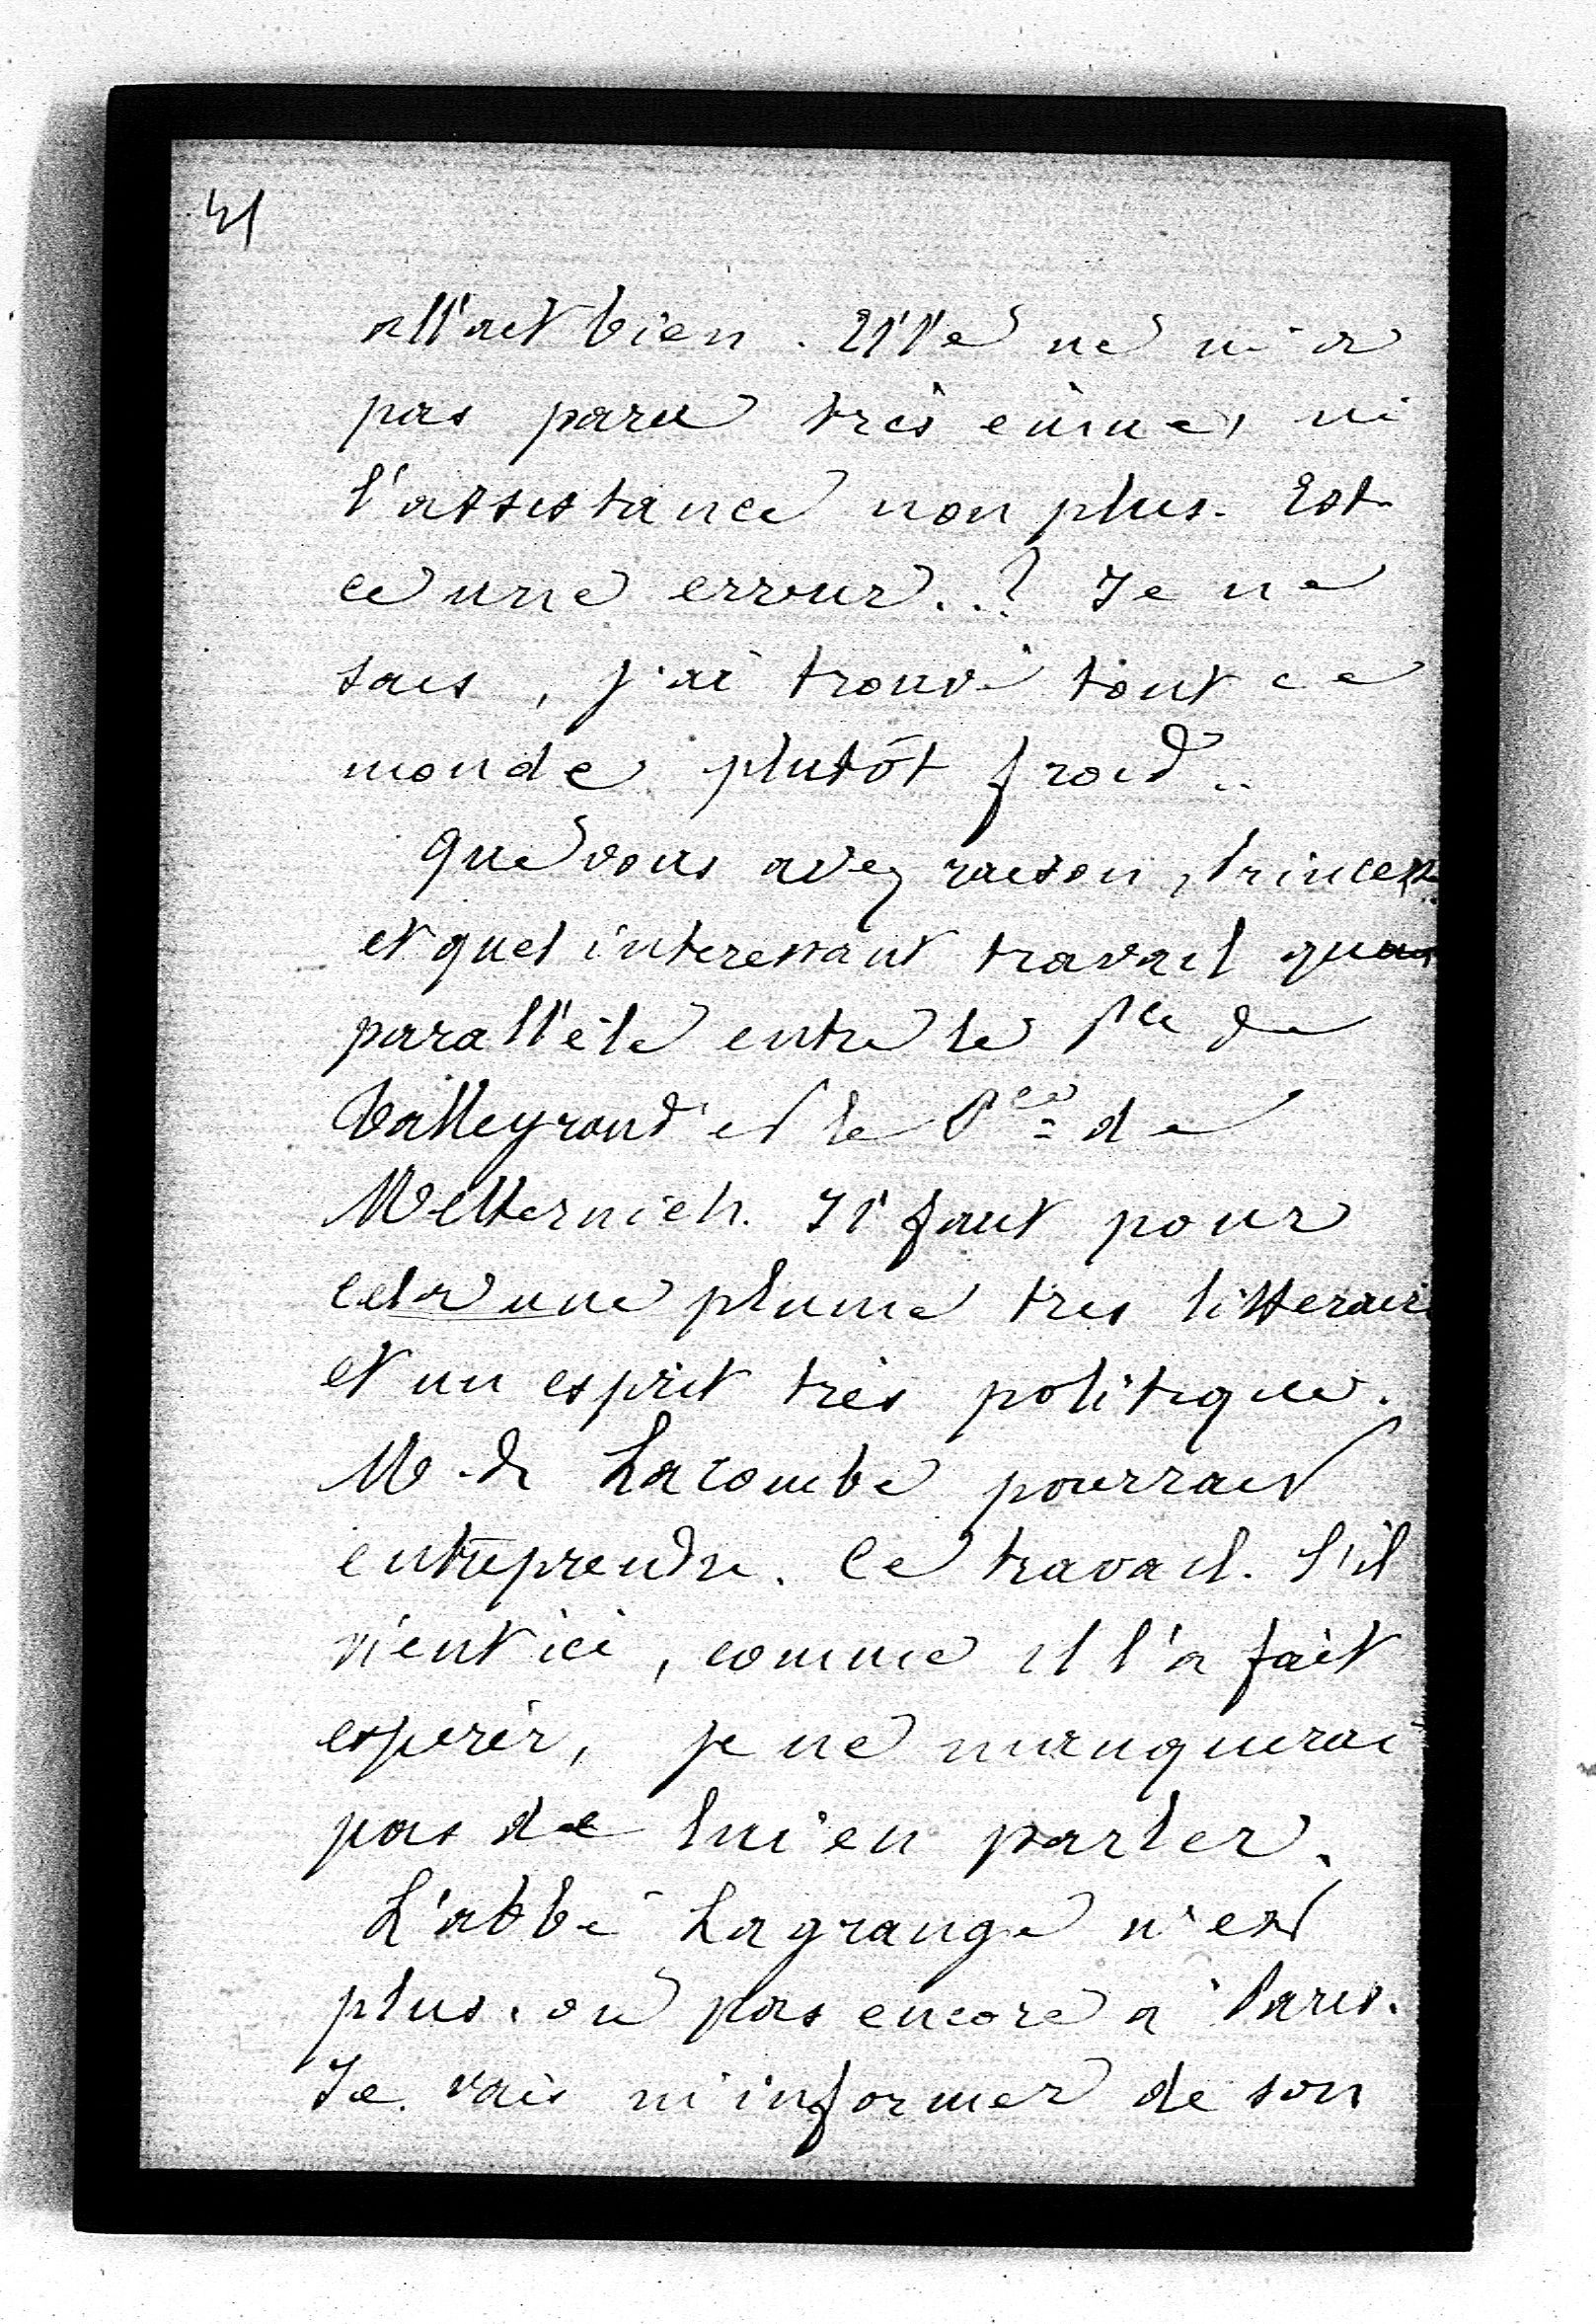 41
allait bien. Elle ne m'a
pas paru très émue, ni
l'assistance non plus. Est
ce une erreur..? Je ne
sais, j'ai trouvé tout ce
monde plutôt froid..
Que vous avez raison, Princesse
et quel interessant travail qu'un
parallèle entre le Pce de
Talleyrand et le Pce de
Metternich. Il faut pour
cela une plume tres litteraire
et un esprit très politique.
M. de Lacombe pourrait
entreprendre. Ce travail. S'il
vient ici, comme il l'a fait
esperer, je ne manquerai
pas de lui en parler.
L'abbé Lagrange n'est
plus. ou pas encore à Paris.
Je. vais m'informer de son